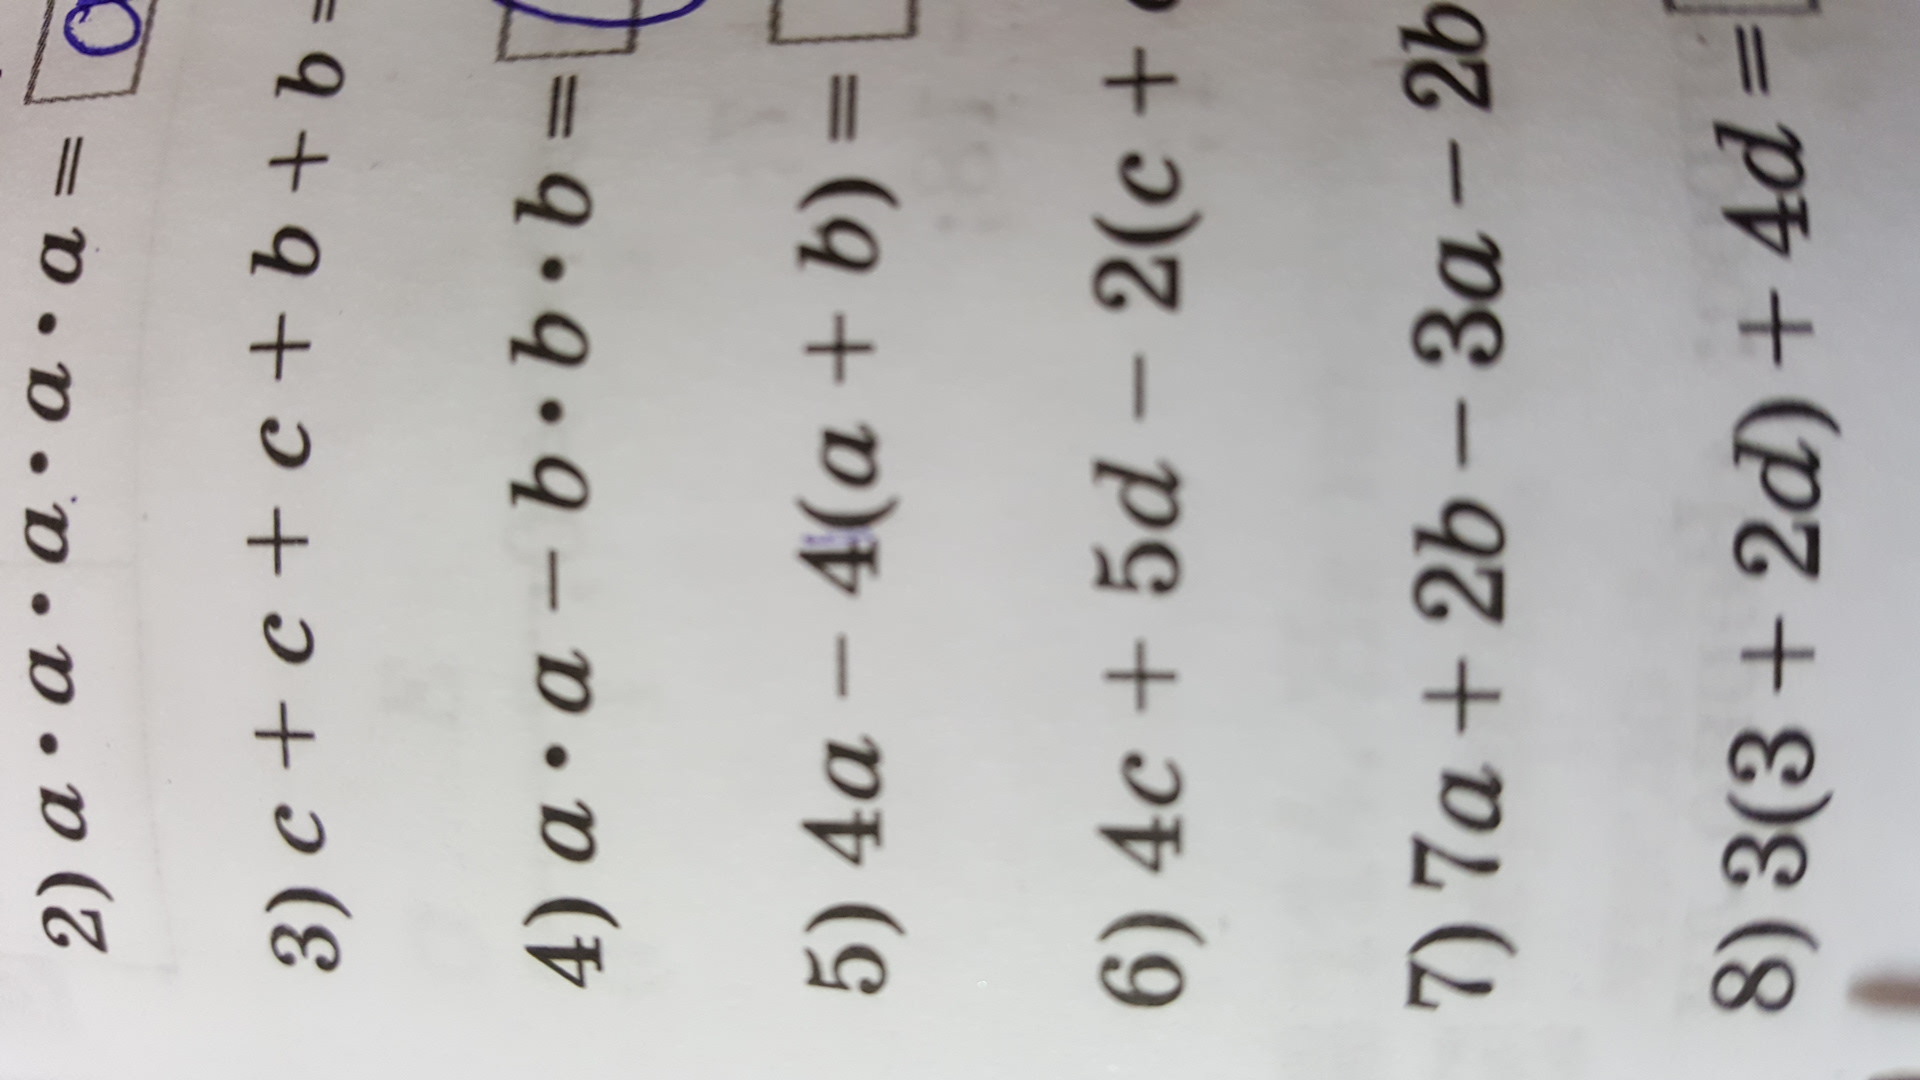 2) a · a · a · a · a =
3) c + c + c + b + b =
4) a · a − b · b · b =
5) 4a − 4(a + b) =
6) 4c + 5d − 2(c +
7) 7a + 2b − 3a − 2b
8) 3(3 + 2d) + 4d =